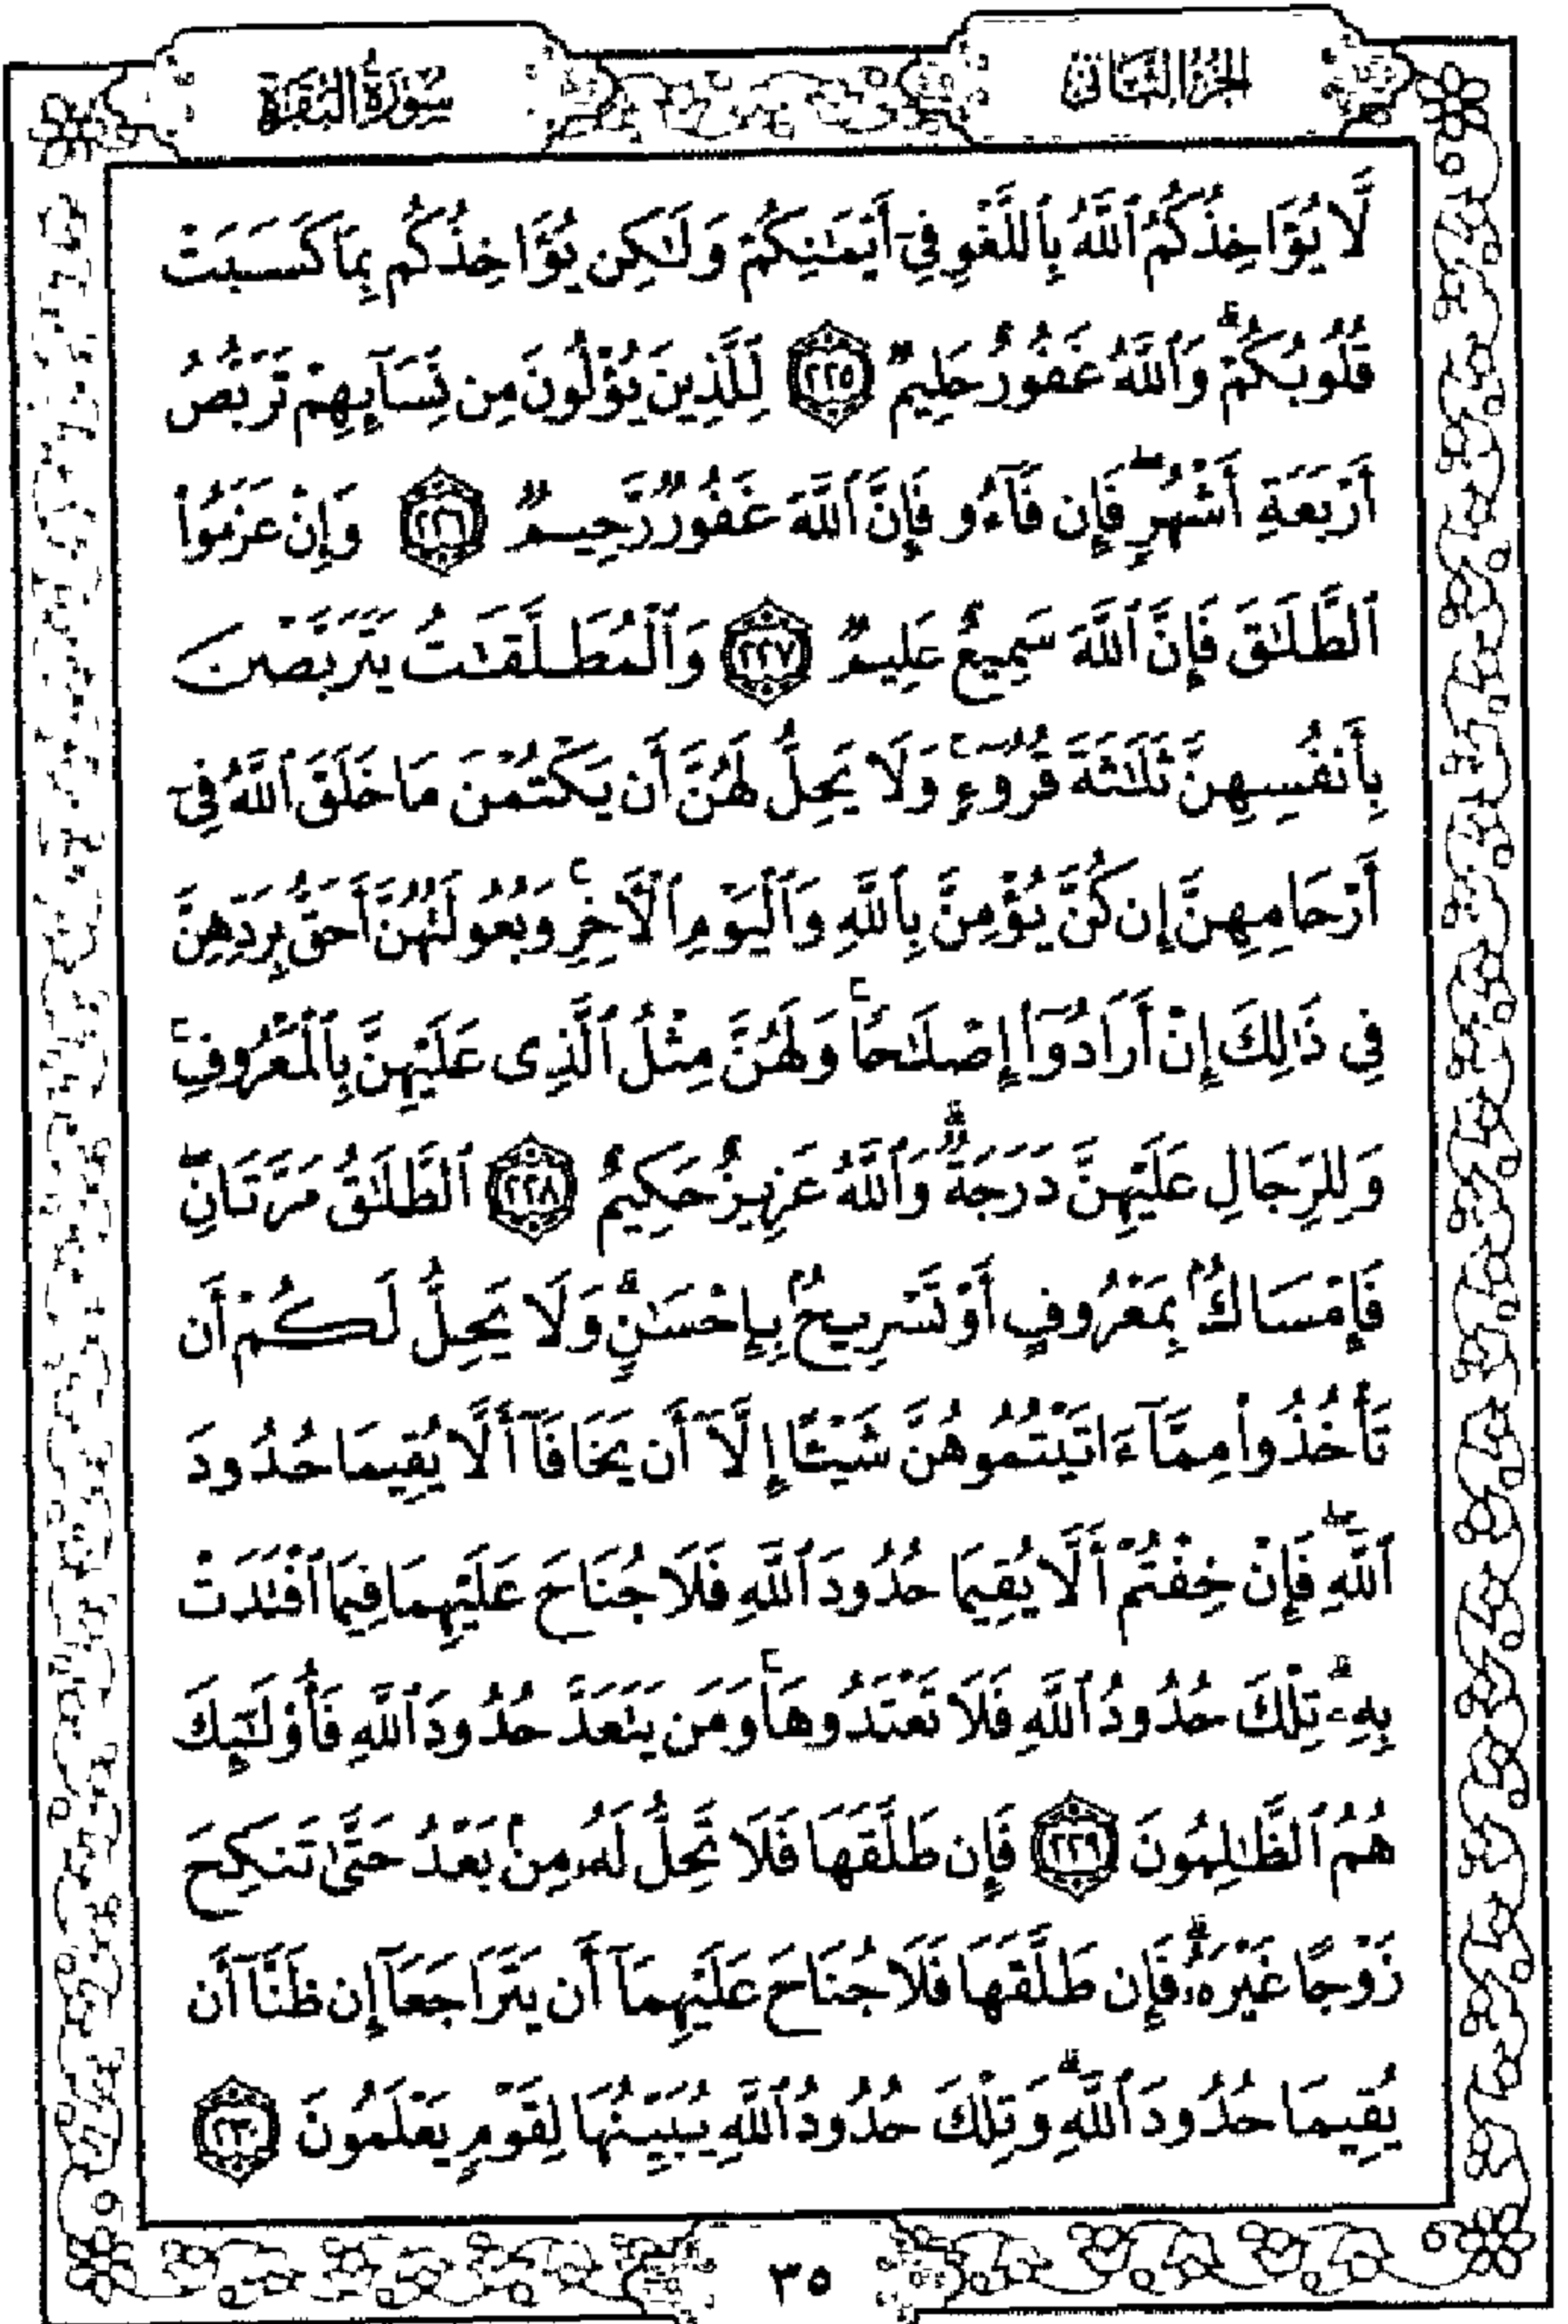 الجزء الثاني
سورة البقرة
لَّا يُؤَاخِذُكُمُ ٱللَّهُ بِٱللَّغْوِ فِىٓ أَيْمَـٰنِكُمْ وَلَـٰكِن يُؤَاخِذُكُم بِمَا كَسَبَتْ
قُلُوبُكُمْ ۗ وَٱللَّهُ غَفُورٌ حَلِيمٌ ٢٢٥ لِّلَّذِينَ يُؤْلُونَ مِن نِّسَآئِهِمْ تَرَبُّصُ
أَرْبَعَةِ أَشْهُرٍ ۖ فَإِن فَآءُو فَإِنَّ ٱللَّهَ غَفُورٌ رَّحِيمٌ ٢٢٦ وَإِنْ عَزَمُوا۟
ٱلطَّلَـٰقَ فَإِنَّ ٱللَّهَ سَمِيعٌ عَلِيمٌ ٢٢٧ وَٱلْمُطَلَّقَـٰتُ يَتَرَبَّصْنَ
بِأَنفُسِهِنَّ ثَلَـٰثَةَ قُرُوٓءٍ ۚ وَلَا يَحِلُّ لَهُنَّ أَن يَكْتُمْنَ مَا خَلَقَ ٱللَّهُ فِىٓ
أَرْحَامِهِنَّ إِن كُنَّ يُؤْمِنَّ بِٱللَّهِ وَٱلْيَوْمِ ٱلْـَٔاخِرِ ۚ وَبُعُولَتُهُنَّ أَحَقُّ بِرَدِّهِنَّ
فِى ذَٰلِكَ إِنْ أَرَادُوٓا۟ إِصْلَـٰحًا ۚ وَلَهُنَّ مِثْلُ ٱلَّذِى عَلَيْهِنَّ بِٱلْمَعْرُوفِ ۚ
وَلِلرِّجَالِ عَلَيْهِنَّ دَرَجَةٌ ۗ وَٱللَّهُ عَزِيزٌ حَكِيمٌ ٢٢٨ ٱلطَّلَـٰقُ مَرَّتَانِ ۖ
فَإِمْسَاكٌۢ بِمَعْرُوفٍ أَوْ تَسْرِيحٌۢ بِإِحْسَـٰنٍ ۗ وَلَا يَحِلُّ لَكُمْ أَن
تَأْخُذُوا۟ مِمَّآ ءَاتَيْتُمُوهُنَّ شَيْـًٔا إِلَّآ أَن يَخَافَآ أَلَّا يُقِيمَا حُدُودَ
ٱللَّهِ ۖ فَإِنْ خِفْتُمْ أَلَّا يُقِيمَا حُدُودَ ٱللَّهِ فَلَا جُنَاحَ عَلَيْهِمَا فِيمَا ٱفْتَدَتْ
بِهِۦ ۗ تِلْكَ حُدُودُ ٱللَّهِ فَلَا تَعْتَدُوهَا ۚ وَمَن يَتَعَدَّ حُدُودَ ٱللَّهِ فَأُو۟لَـٰٓئِكَ
هُمُ ٱلظَّـٰلِمُونَ ٢٢٩ فَإِن طَلَّقَهَا فَلَا تَحِلُّ لَهُۥ مِنۢ بَعْدُ حَتَّىٰ تَنكِحَ
زَوْجًا غَيْرَهُۥ ۗ فَإِن طَلَّقَهَا فَلَا جُنَاحَ عَلَيْهِمَآ أَن يَتَرَاجَعَآ إِن ظَنَّآ أَن
يُقِيمَا حُدُودَ ٱللَّهِ ۗ وَتِلْكَ حُدُودُ ٱللَّهِ يُبَيِّنُهَا لِقَوْمٍ يَعْلَمُونَ ٢٣٠
٣٥